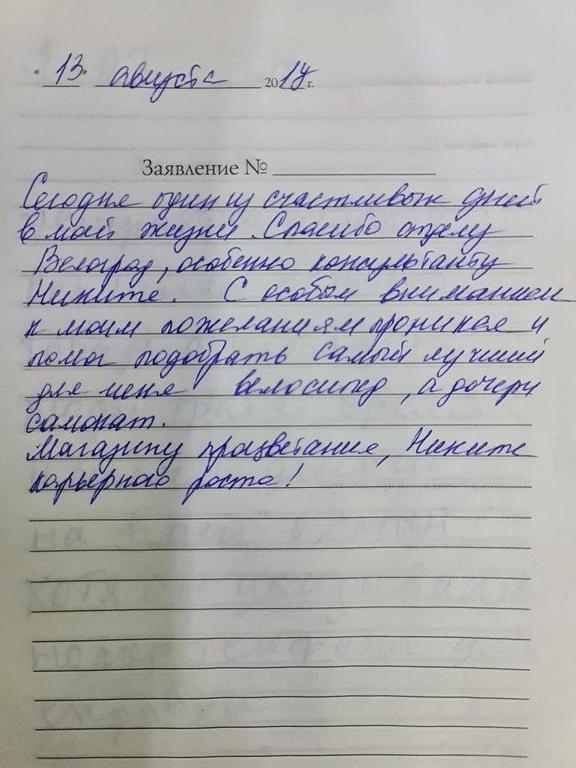 « 13 » августа 2017 г.
Заявление №
Сегодня один из счастливых дней
в моей жизни. Спасибо отделу
Велоград, особенно консультанту
Никите. С особым вниманием
к моим пожеланиям проникся и
помог подобрать самый лучший
для меня велосипед, а дочери
самокат.
Магазину процветания, Никите
карьерного роста!